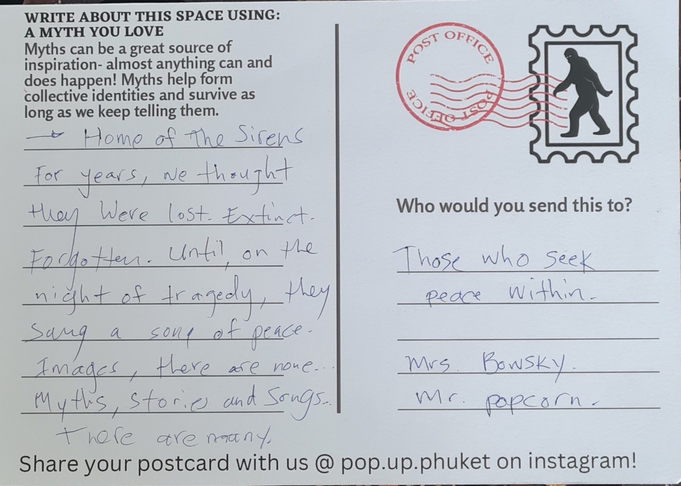 WRITE ABOUT THIS SPACE USING:
A MYTH YOU LOVE
Myths can be a great source of
inspiration- almost anything can and
does happen! Myths help form
collective identities and survive as
long as we keep telling them.
→ Home of The Sirens
For years, we thought
they Were lost. Extinct.
Forgotten. Until, on the
night of tragedy, they
Sang a song of peace.
Images, there are none...
Myths, Stories and Songs..
There are many.
POST OFFICE
POST OFFICE
Who would you send this to?
Those who seek
peace within.
Mrs. Bowsky.
Mr. popcorn.
Share your postcard with us @ pop.up.phuket on instagram!